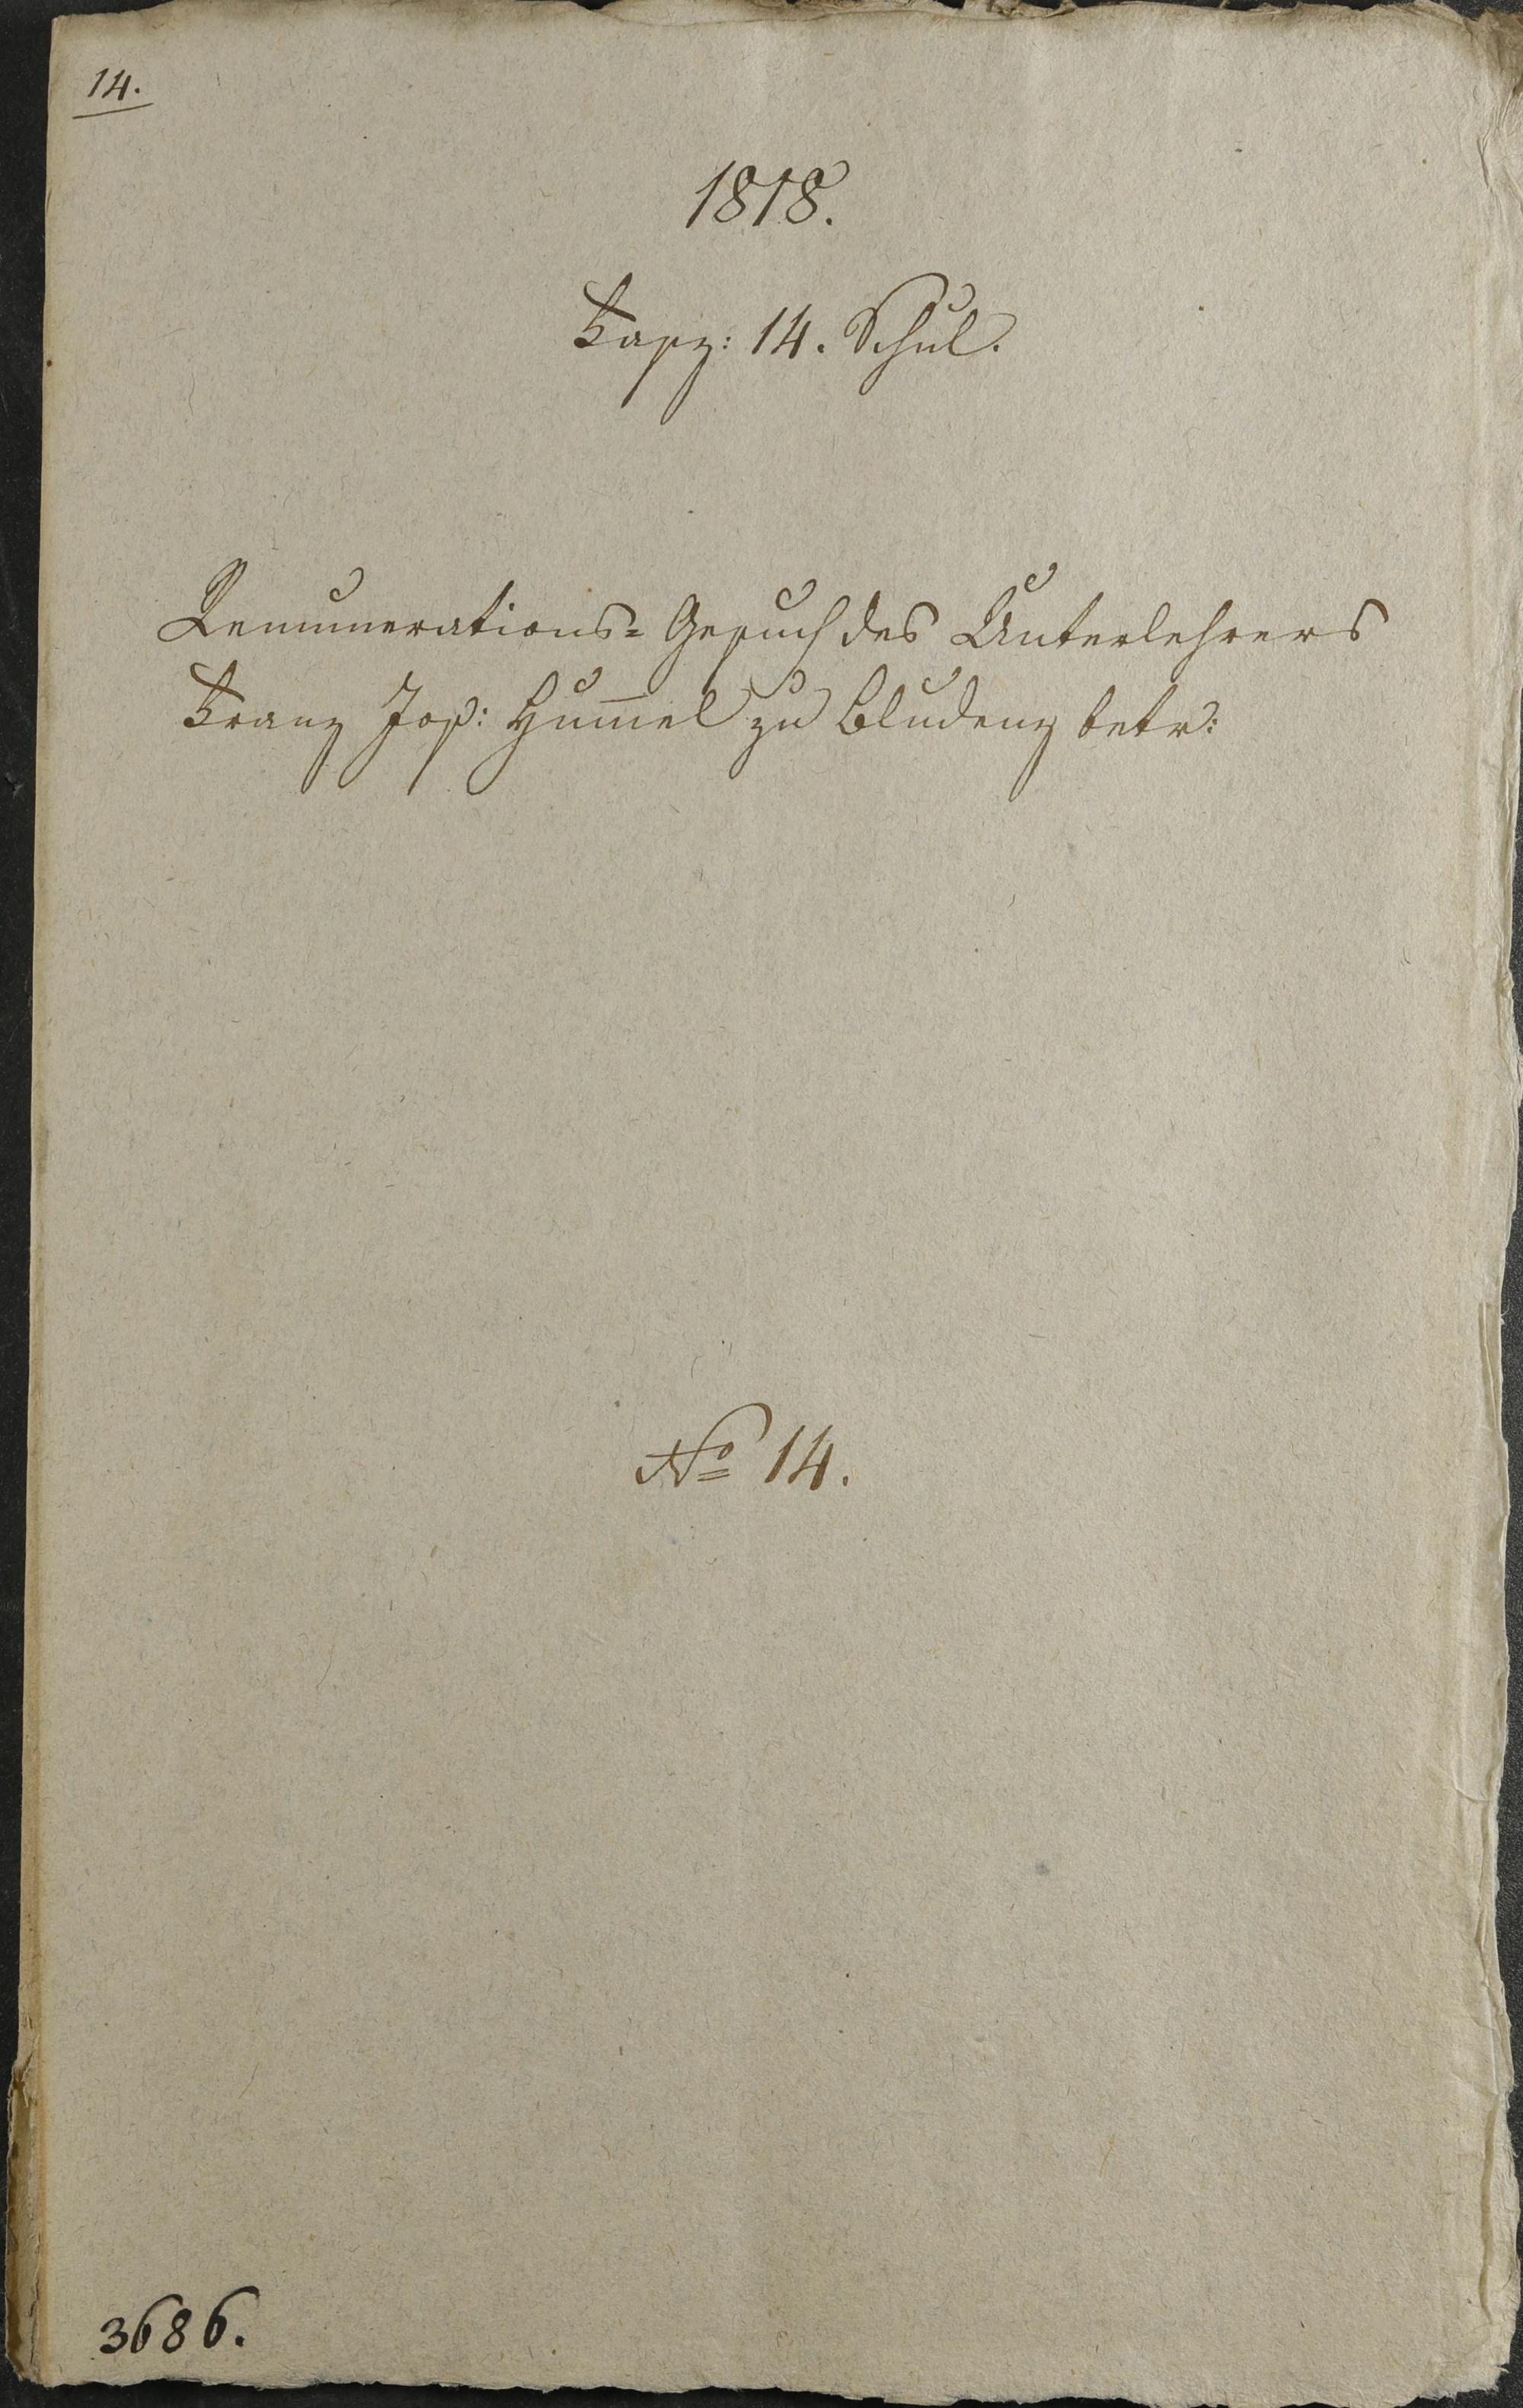 14.
1818.
Fasz: 14. Schul.
Remunerations= Gesuch des Unterlehrers
Franz Jos: Hum̅el zu Bludenz betr:
No 14.
3686.